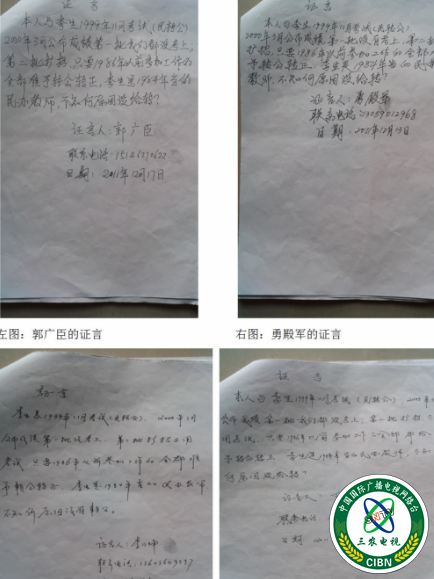 证言
本人与李生1999年11月考试(民转公)
2000年3月公布成绩第一批我们都没考上,
第二批扩招,只要1986年以前参加工作的
全部准予转公转正,李生是1984年当的
民办教师,不知何原因没给转?
证言人:郭广臣
联系电话
日期:2011年12月17日
证言
本人与李生1999年11月考试(民转公)
2000年3月公布成绩第一批没有考上,第二批
扩招,只要1986年以前参加工作的全部准
予转公转正,李生是1984年当的民办
教师,不知何原因没给转?
证言人:勇殿军
联系电话:13059012968
日期:2011年12月17日
左图:郭广臣的证言
右图:勇殿军的证言
证言
1999年11月考试(民转公),2000年3月
公布成绩第一批没考上,第二批扩招
考试,只要1986年以前参加工作的全部准
予转公转正,李生是1984年当的民办教师
不知何原因没有转公。
证言人:李
联系电话:13603609037
证言
本人与李生1999年11月考试(民转公)
公布成绩第一批我们都没考上,第二批扩招
只要1986年以前参加工作全部准给
予转公转正,李生是1984年当的民办教师,不知
何原因没给转?
证言人
联系电话
日期
中国国际广播电视网络台
三农电视
CIBN